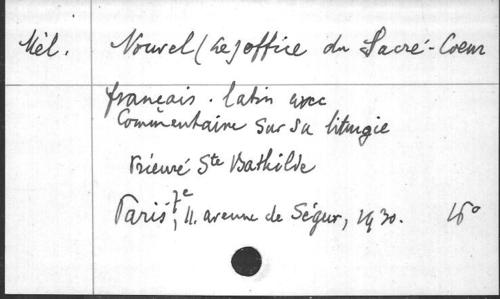 Mél. Nouvel (Le) office du Sacré-Coeur
français. latin avec
Commentaire sur sa liturgie
Prieuré Ste Bathilde
Paris 7e, 11. avenue de Ségur, 1930. 16°